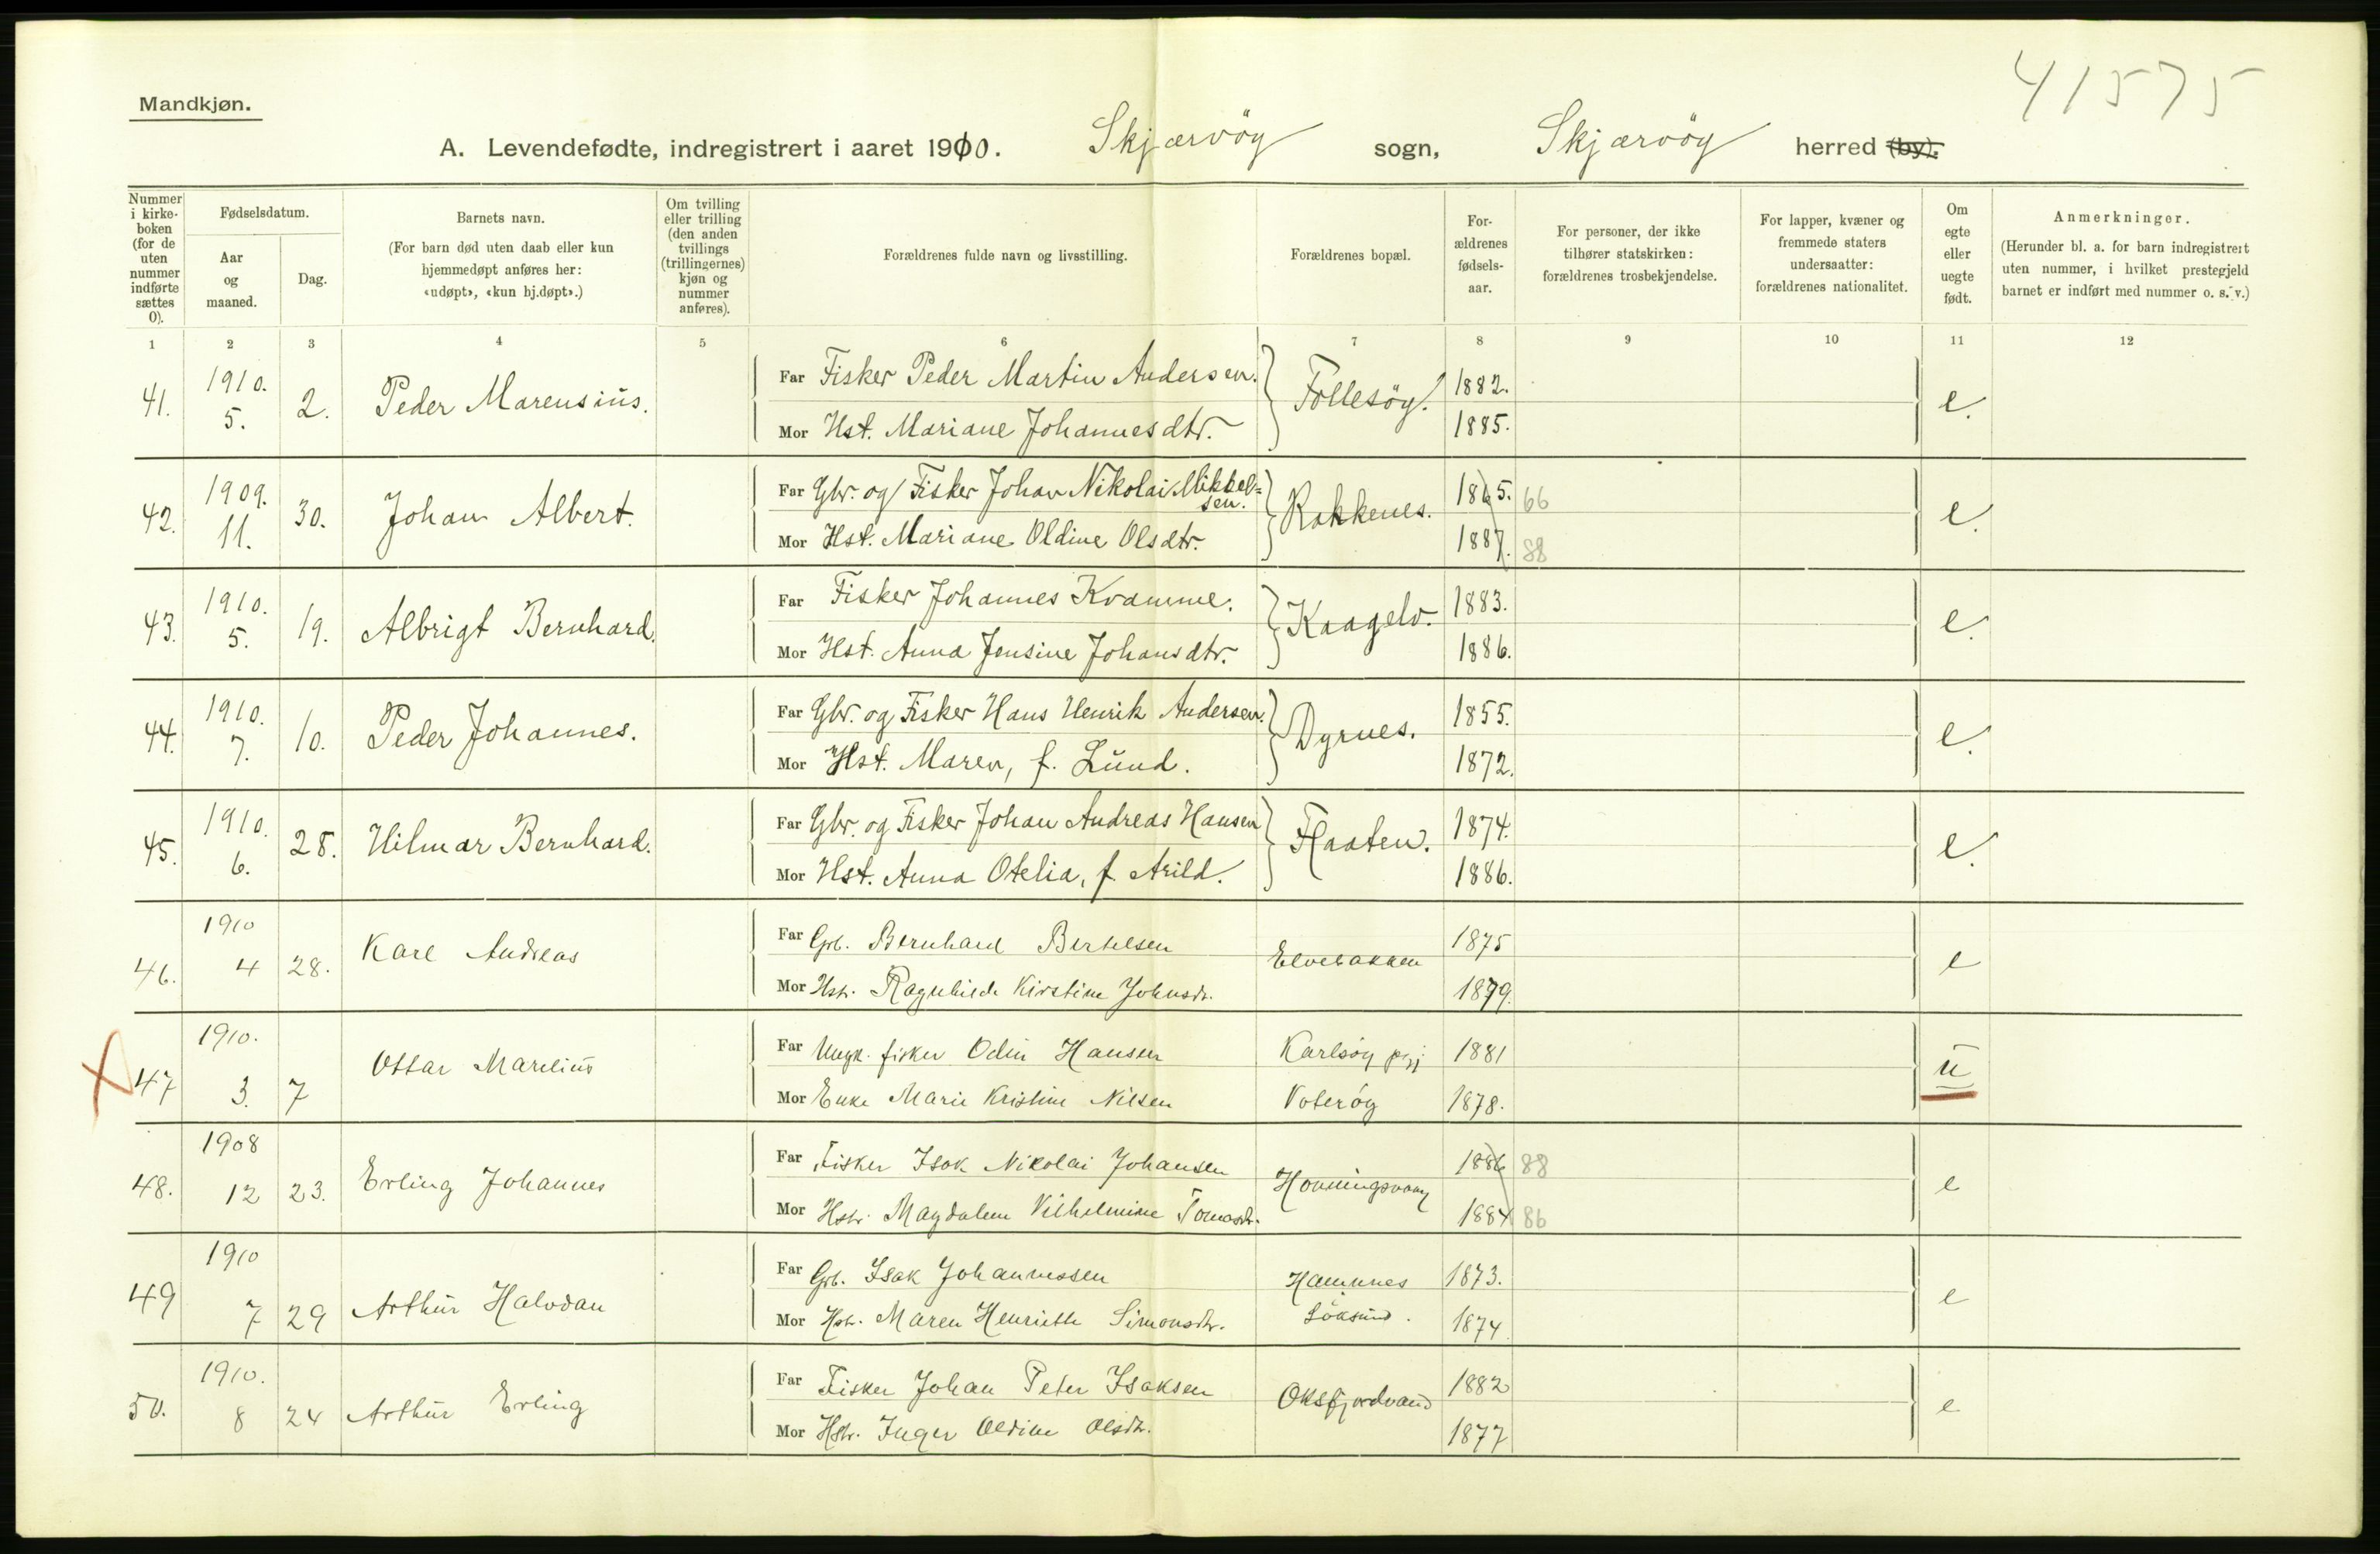 41575
Mandkjøn.
A. Levendefødte, indregistrert i aaret 1910. Skjærvöy sogn, Skjærvöy herred (by).
Nummer i kirke-boken (for de uten nummer indførte sættes 0).
Fødselsdatum.
Aar og maaned.
Dag.
Barnets navn.
(For barn død uten daab eller kun hjemmedøpt anføres her: «udøpt», «kun hj.døpt».)
Om tvilling eller trilling (den anden tvillings (trillingernes) kjøn og nummer anføres).
Forældrenes fulde navn og livsstilling.
Forældrenes bopæl.
For-ældrenes fødsels-aar.
For personer, der ikke tilhører statskirken: forældrenes trosbekjendelse.
For lapper, kvæner og fremmede staters undersaatter: forældrenes nationalitet.
Om egte eller uegte født.
Anmerkninger.
(Herunder bl. a. for barn indregistrert uten nummer, i hvilket prestegjeld barnet er indført med nummer o. s. v.)
1 2 3 4 5 6 7 8 9 10 11 12
41. 1910. 5. 2. Peder Marensius. Far Fisker Peder Martin Andersen. Follesöy. 1882. e.
Mor Hst. Mariane Johannesdtr. 1885.
42. 1909. 11. 30. Johan Albert. Far Gbr. og Fisker Johan Nikolai Mikkel=sen. Rakkenes. 1865. 66 e.
Mor Hst. Mariane Oldine Olsdtr. 1887. 88
43. 1910. 5. 19. Albrigt Bernhard. Far Fisker Johannes Kvamme. Kaagelv. 1883. e.
Mor Hst. Anna Jensine Johansdtr. 1886.
44. 1910. 7. 10. Peder Johannes. Far Gbr. og Fisker Hans Henrik Andersen. Dyrnes. 1855. e.
Mor Hst. Maren, f. Lund. 1872.
45. 1910. 6. 28. Hilmar Bernhard. Far Gbr. og Fisker Johan Andreas Hansen Flaaten. 1874. e.
Mor Hst. Anna Otelia, f. Arild. 1886.
46. 1910 4 28. Karl Andreas Far Grb. Bernhard Bertelsen Elvebakken 1875 e
Mor Hstr. Ragnhild Kirstine Johnsdr. 1879.
X 47 1910. 3. 7 Ottar Marelius Far Ungk. fisker Odin Hansen Karlsöy pgj 1881 u
Mor Enke Marie Kristine Nilsen Voteröy 1878.
48. 1908 12 23. Erling Johannes Far Fisker Isak Nikolai Johansen Honningsvaag 1886 88 e
Mor Hstr. Magdalene Vilhelmine Tomasdr. 1884 86
49 1910 7 29 Arthur Halvdan Far Grb. Isak Johannessen Hamnnes 1873. e
Mor Hstr. Maren Henriette Simonsdr. Löksund. 1874.
50. 1910. 8 24 Arthur Erling Far Fisker Johan Peter Isaksen Oksfjordvand 1882 e
Mor Hstr. Inger Oldine Olsdr. 1877